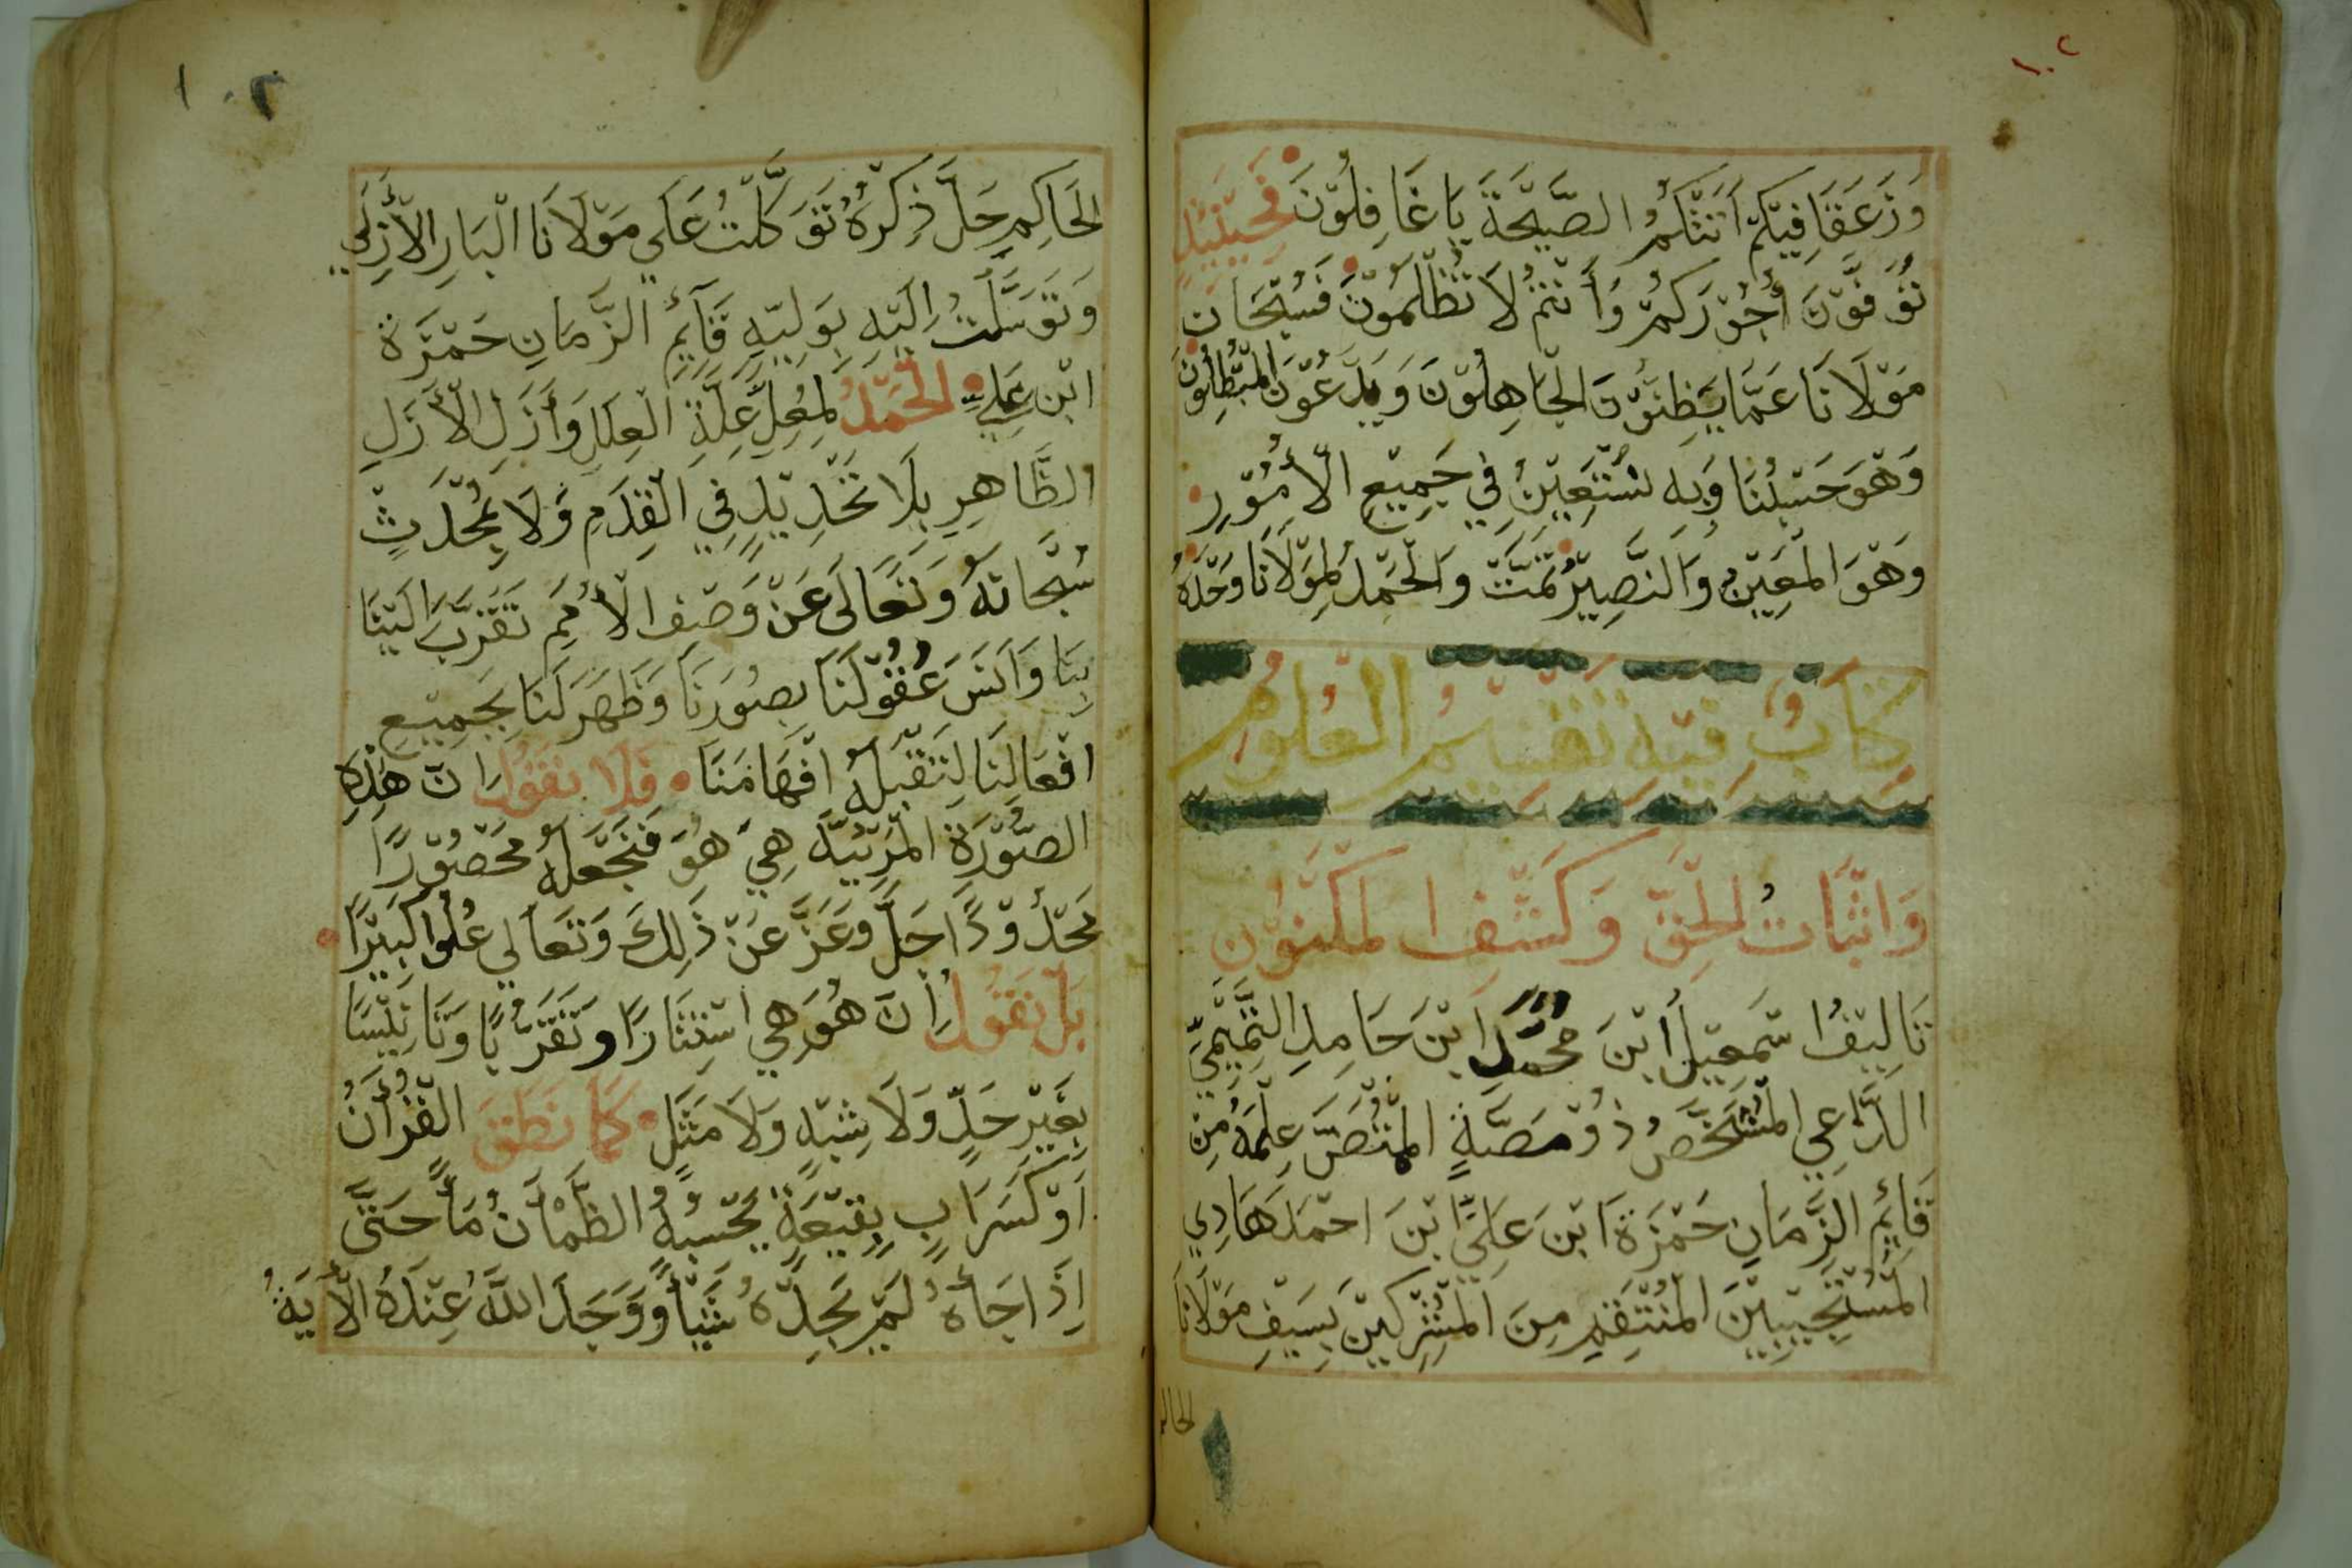 ١٠٢
وَزَعَقَا فِيْكُمْ اَتَتْكُمُ الصَّيْحَةَ يَا غَافِلُوْنَ فَحِيْنَئِذٍ
تُوَفَّوْنَ أُجُوْرَكُمْ وَأَنْتُمْ لَا تُظْلَمُوْنَ فَسُبْحَانَ
مَوْلَانَا عَمَّا يَظِنُّوْنَ الجَاهِلُوْنَ وَيَدَّعُوْنَ المُبْطِلُوْنَ
وَهْوَ حَسْبُنَا وَبِهِ نَسْتَعِيْنُ فِي جَمِيْعِ الْأُمُوْرِ
وَهْوَ الْمُعِيْنُ وَالنَّصِيْرُ تَمَّتْ وَالْحَمْدُ لِمَوْلَانَا وَحْدَهُ
كِتَابٌ فِيْهِ تَقْسِيْمُ الْعُلُوْمِ
وَاثْبَاتُ الْحَقِّ وَكَشْفِ الْمَكْنُوْنِ
تَالِيْفُ اسْمَعِيْلُ ابْنَ مُحَمَّدِ ابْنَ حَامِدِ التَّمِيْمِيِّ
الدَّاعِي الْمُشَخَّصُ ذُوْ مَصَّةٍ الْمُمْتَصُّ عِلْمَهُ مِنْ
قَائِمِ الزَّمَانِ حَمْزَةَ ابْنَ عَلِيِّ ابْنَ احْمَدَ هَادِي
الْمُسْتَجِيْبِيْنَ الْمُنْتَقِمِ مِنَ الْمُشْرِكِيْنَ بِسَيْفِ مَوْلَانَا
الحاكم
١٠٢
الحَاكِمِ جَلَّ ذِكْرُهُ تَوَكَّلْتُ عَلَي مَوْلَانَا الْبَارِ الْأَزَلِي
وَتَوَسَّلْتُ اِلَيْهِ بِوَلِيِّهِ قَآئِمِ الزَّمَانِ حَمْزَة
ابْنِ عَلِيٍّ الْحَمْدُ لِمُعِلِّ عِلَّةِ الْعِلَلِ وَأَزَلِ الْأَزَلِ
الظَّاهِرِ بِلَا تَحْدِيْدٍ فِي الْقِدَمِ وَلَا بِمُحْدَثٍ
سُبْحَانَهُ وَتَعَالَى عَنْ وَصْفِ الْأُمَمِ تَقَرَّبَ اِلَيْنَا
بِنَا وَاَنَسَ عُقُوْلَنَا بِصُوَرِنَا وَظَهَرَ لَنَا بِجَمِيْعِ
افْعَالِنَا لِتَقْبَلَهُ افْهَامَنَا فَلَا نَقُوْلُ اِنَّ هٰذِهِ
الصُّوْرَةَ الْمَرْئِيَّهَ هِيَ هُوَ فَنَجْعَلَهُ مَحْصُوْرًا
مَحْدُوْدًا جَلَّ وَعَزَّ عَنْ ذَلِكَ وَتَعَالى عُلُوًا كَبِيْرًا
بَلْ نَقُوْلُ اِنَّ هُوَ هِي اسْتِتَارًا وَتَقَرُّبًا وَتَانِيْسًا
بِغَيْرِ حَدٍّ وَلَا شِبْهٍ وَلَا مَثَلٍ كَمَا نَطَقَ الْقُرْأَنُ
اَوْ كَسَرَابٍ بِقِيْعَةٍ يَحْسَبُهُ الظَّمْأَنُ مَآءً حَتَّى
اِذَا جَاءَهُ لَمْ يَجِدْهُ شَيْأً وَوَجَدَ اللَّهَ عِنْدَهُ الْأَيَةُ